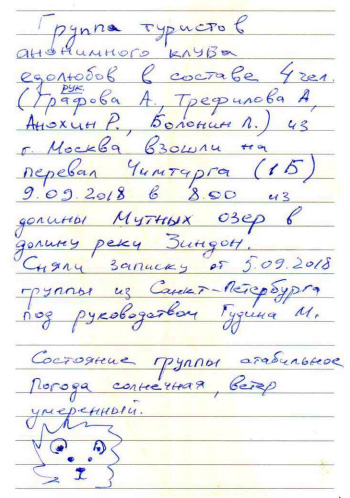 Группа туристов
анонимного клуба
едолюбов в составе 4 чел.
рук.
(Графова А., Трефилова А,
Анохин Р., Болонин Л.) из
г. Москва взошли на
перевал Чимтарга (1Б)
9.09.2018 в 8.00 из
долины Мутных озер в
долину реки Зиндон.
Сняли записку от 5.09.2018
группы из Санкт-Петербурга
под руководством Гудина М.
Состояние группы стабильное
Погода солнечная, ветер
умеренный.